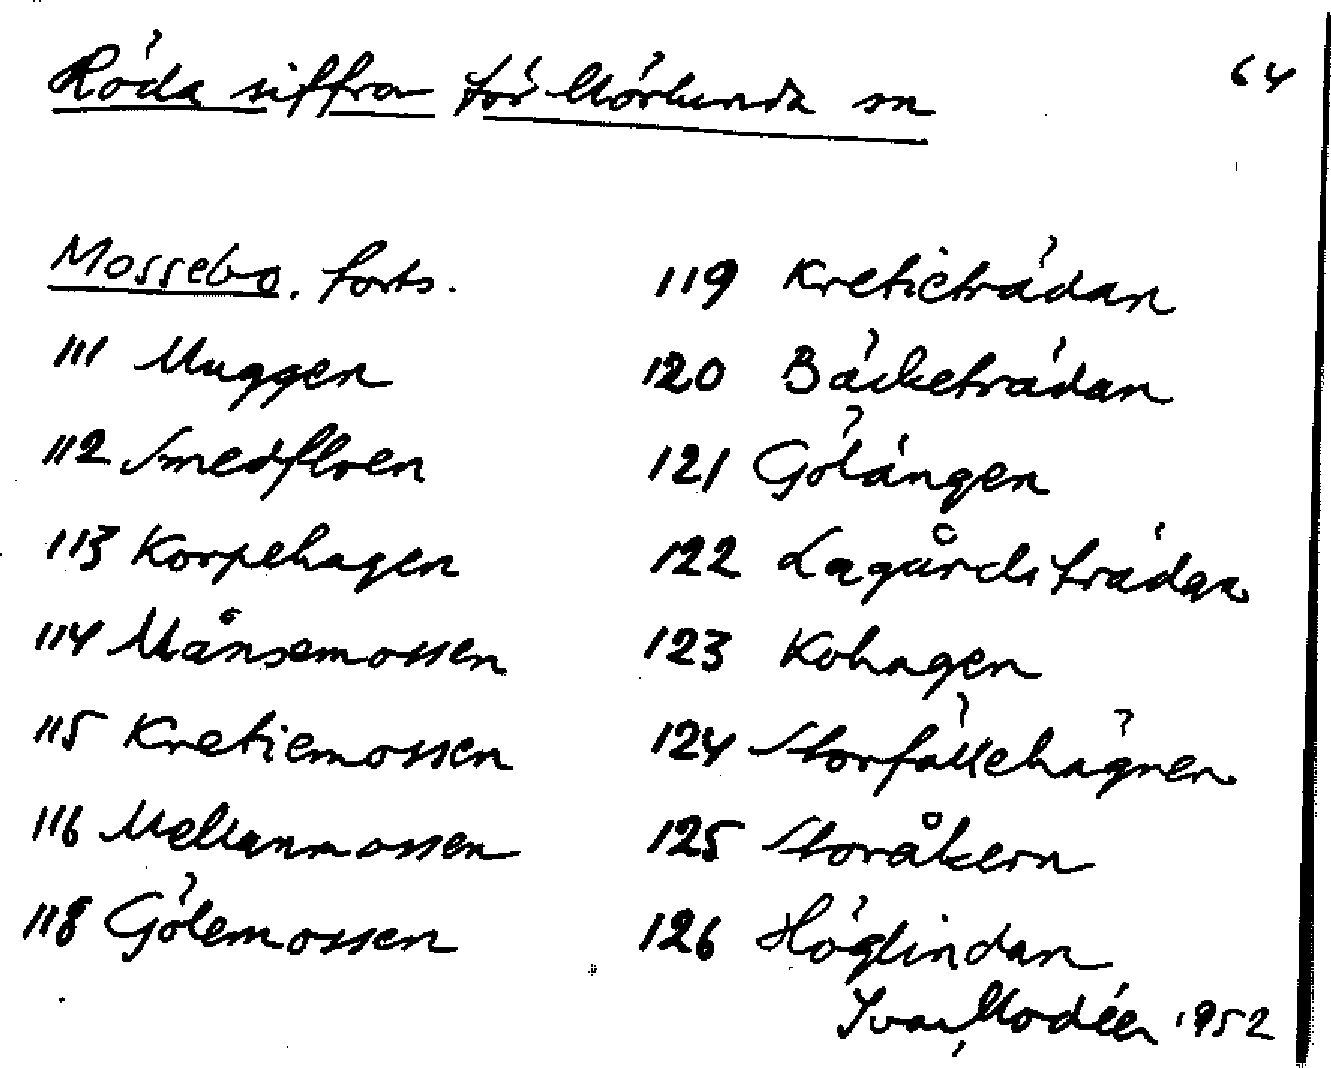 Röda siffror för Mörlunda sn
64
Mossebo. forts.
111 Muggen
112 Smedfloen
113 Korpehagen
114 Månsemossen
115 Kretiemossen
116 Mellanmossen
118 Gölemossen
119 Kretieträdan
120 Bäcketrädan
121 Gölängen
122 Lagårdsträdan
123 Kohagen
124 Storfällehägnen
125 Storåkern
126 Höglindan
Ivar Modéer 1952